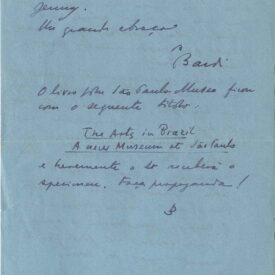 Jenny.
Um grande abraço
Bardi
O livro sobre São Paulo Museu ficou
com o seguente titolo.
The Arts in Brazil
A new Museum at São Paulo
e brevemente o Sr receberá o
specimen. Faça propaganda!
B